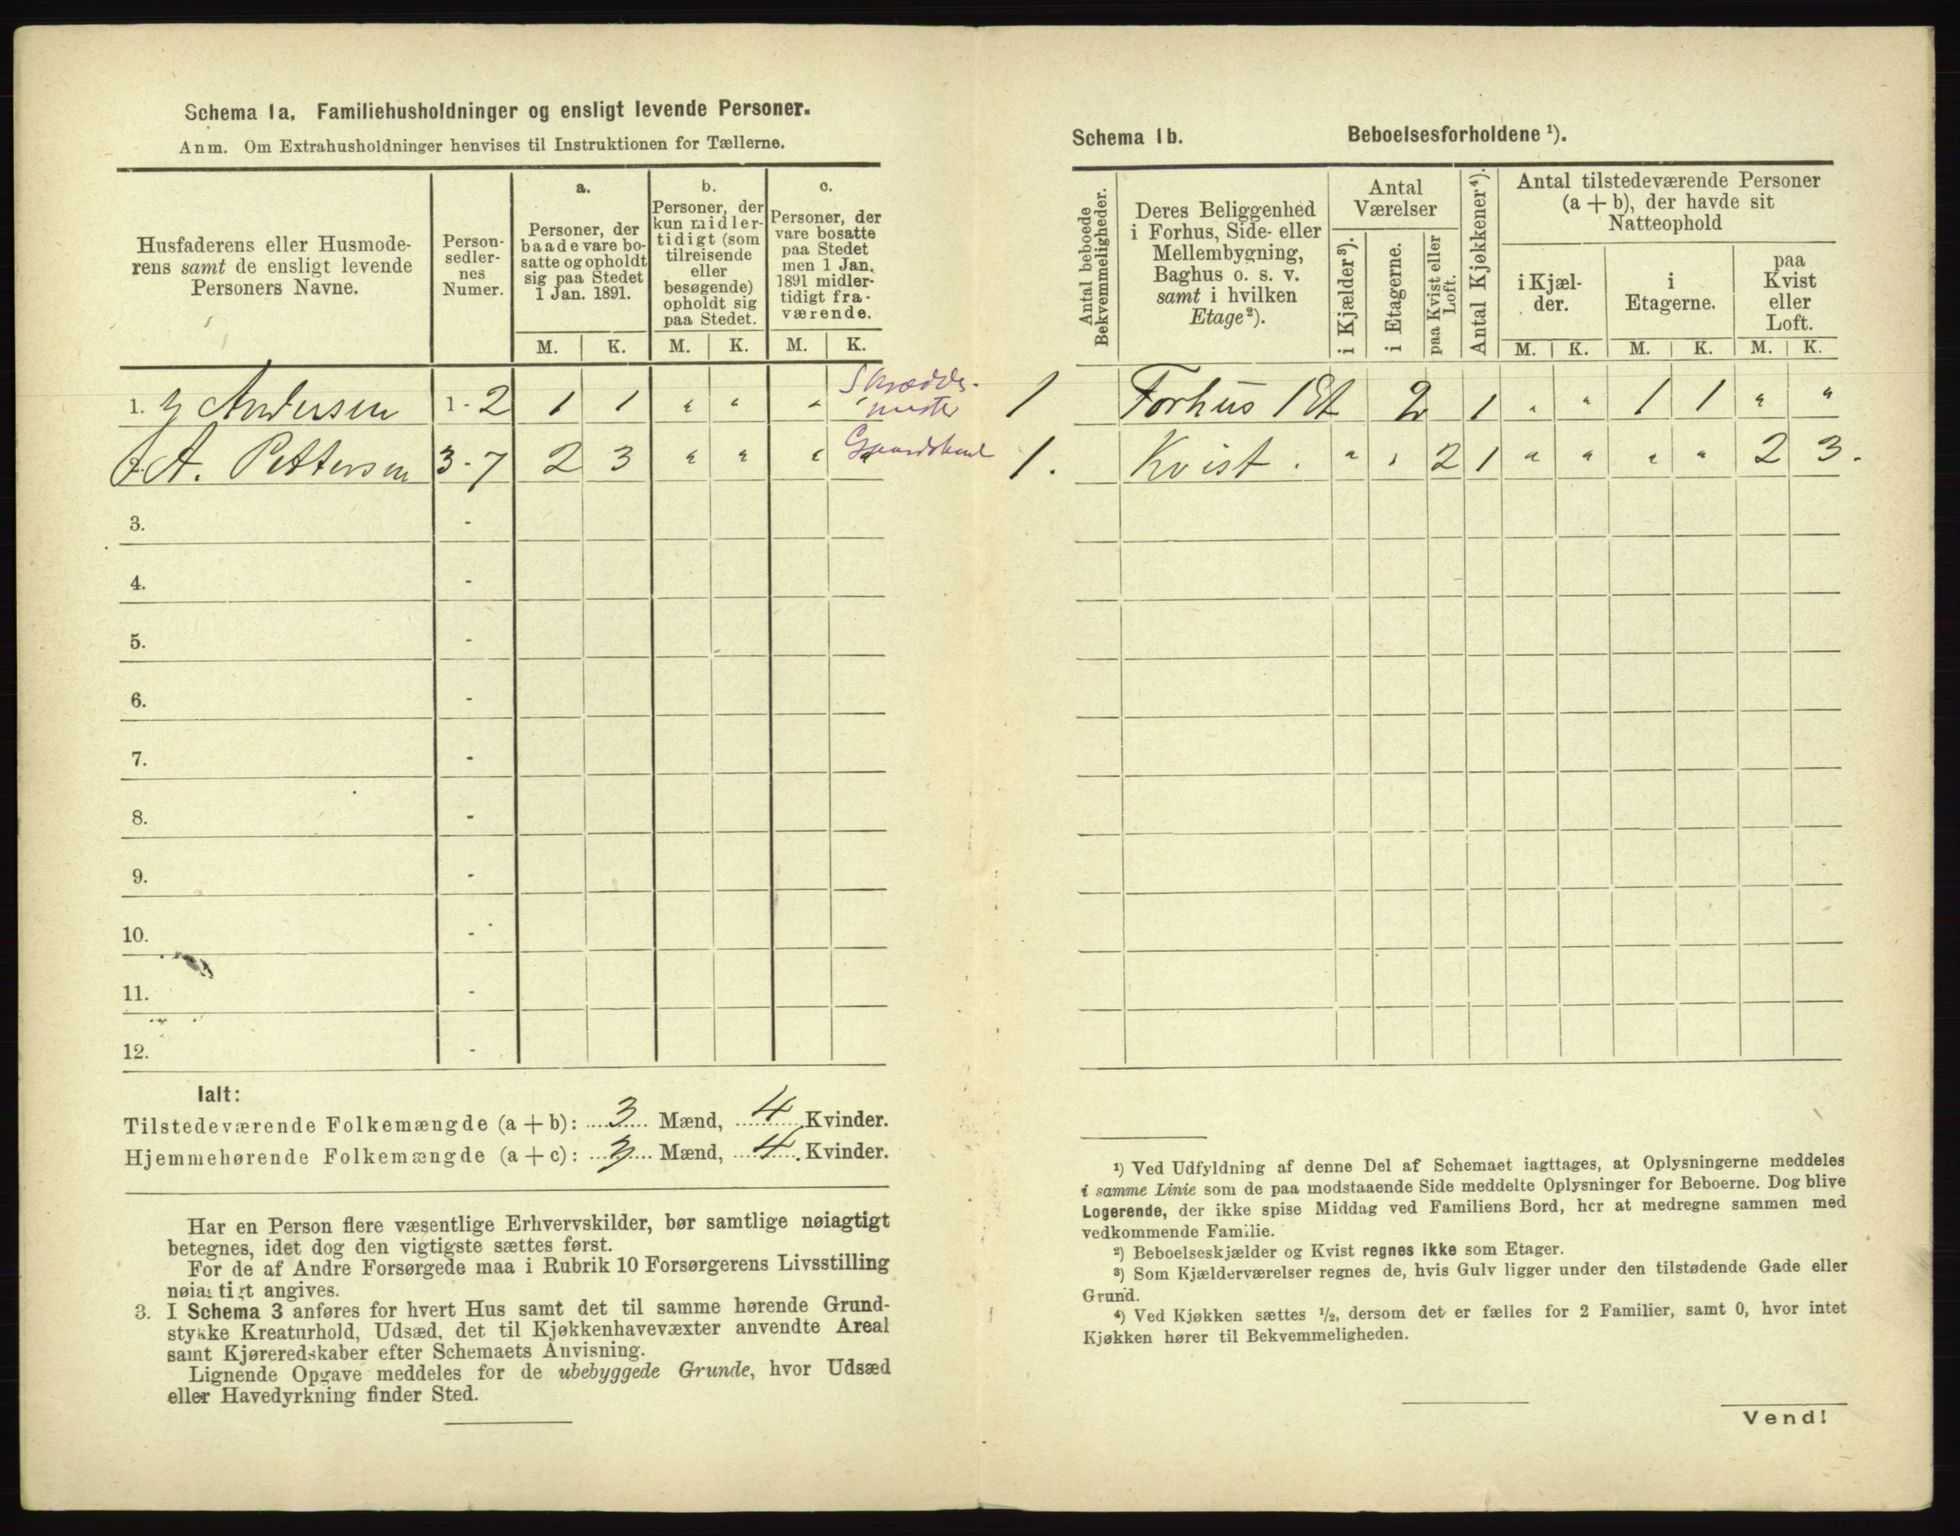 Schema 1a. Familiehusholdninger og ensligt levende Personer.
Anm. Om Extrahusholdninger henvises til Instruktionen for Tællerne.
Husfaderens eller Husmode-
rens samt de ensligt levende
Personers Navne.
Person-
sedler-
nes
Numer.
a.
Personer, der
baade vare bo-
satte og opholdt
sig paa Stedet
1 Jan. 1891.
b.
Personer, der
kun midler-
tidigt (som
tilreisende
eller
besøgende)
opholdt sig
paa Stedet.
c.
Personer, der
vare bosatte
paa Stedet
men 1 Jan.
1891 midler-
tidigt fra-
værende.
M. K. M. K. M. K.
1. Andersen 1 - 2 1 1 " " " "
A. Pettersen 3 - 7 2 3 " " " "
3. -
4. -
5. -
6. -
7. -
8. -
9. -
10. -
11. -
12. -
Ialt:
Tilstedeværende Folkemængde (a + b): 3 Mænd, 4 Kvinder.
Hjemmehørende Folkemængde (a + c): 3 Mænd, 4 Kvinder.
Har en Person flere væsentlige Erhvervskilder, bør samtlige nøiagtigt
betegnes, idet dog den vigtigste sættes først.
For de af Andre Forsørgede maa i Rubrik 10 Forsørgerens Livsstilling
nøiagtigt angives.
3. I Schema 3 anføres for hvert Hus samt det til samme hørende Grund-
stykke Kreaturhold, Udsæd, det til Kjøkkenhavevæxter anvendte Areal
samt Kjøreredskaber efter Schemaets Anvisning.
Lignende Opgave meddeles for de ubebyggede Grunde, hvor Udsæd
eller Havedyrkning finder Sted.
Schema 1b. Beboelsesforholdene ¹).
Antal beboede
Bekvemmeligheder.
Deres Beliggenhed
i Forhus, Side- eller
Mellembygning,
Baghus o. s. v.
samt i hvilken
Etage²).
Antal
Værelser
i Kjælder³).
i Etagerne.
paa Kvist eller
Loft.
Antal Kjøkkener⁴).
Antal tilstedeværende Personer
(a + b), der havde sit
Natteophold
i Kjæl-
der.
i
Etagerne.
paa
Kvist
eller
Loft.
M. K. M. K. M. K.
1 Forhus 1 Et 2 1 " " 1 1 " "
1. Kvist. " " 2 1 " " " " 2 3.
¹) Ved Udfyldning af denne Del af Schemaet iagttages, at Oplysningerne meddeles
i samme Linie som de paa modstaaende Side meddelte Oplysninger for Beboerne. Dog blive
Logerende, der ikke spise Middag ved Familiens Bord, her at medregne sammen med
vedkommende Familie.
²) Beboelseskjælder og Kvist regnes ikke som Etager.
³) Som Kjælderværelser regnes de, hvis Gulv ligger under den tilstødende Gade eller
Grund.
⁴) Ved Kjøkken sættes ½, dersom det er fælles for 2 Familier, samt 0, hvor intet
Kjøkken hører til Bekvemmeligheden.
Vend!